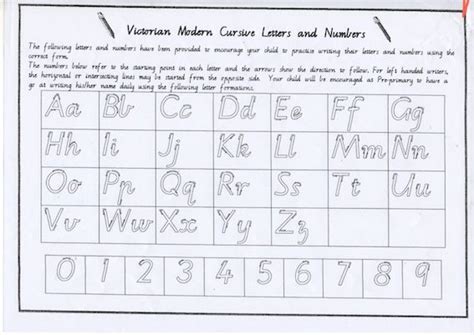 Victorian Modern Cursive Letters and Numbers
The following letters and numbers have been provided to encourage your child to practise writing their letters and numbers using the
correct form.
The numbers below refer to the starting point in each letter and the arrows show the direction to follow. For left handed writers,
the horizontal or intersecting lines may be started from the opposite side. Your child will be encouraged as Pre-primary to have a
go at writing his/her name daily using the following letter formations.
Aa Bb Cc Dd Ee Ff Gg
Hh Ii Jj Kk Ll Mm Nn
Oo Pp Qq Rr Ss Tt Uu
Vv Ww Xx Yy Zz
0 1 2 3 4 5 6 7 8 9